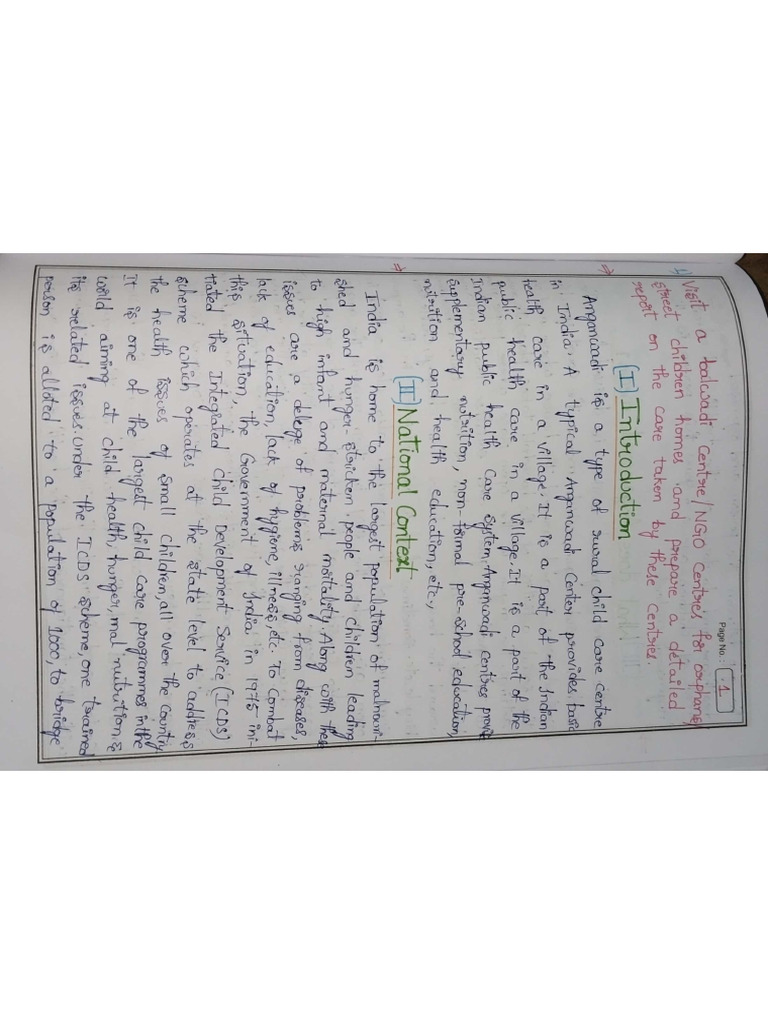 Page No.: 1
1) Visit a balwadi Centre/NGO Centres for orphans,
street children homes and prepare a detailed
report on the care taken by these centres
(I) Introduction
⇒ Anganwadi is a type of rural child care centre
in India. A typical Anganwadi Center provides basic
health care in a village. It is a part of the Indian
public health care in a village. It is a part of the
Indian public health care system. Anganwadi centres provide
supplementary nutrition, non-formal pre-school education,
nutrition and health education, etc.,
(II) National Context
⇒ India is home to the largest population of malnouri-
shed and hunger-stricken people and children leading
to high infant and maternal mortality. Along with these
issues are a deluge of problems ranging from diseases,
lack of education, lack of hygiene, illness, etc. To Combat
this situation, the Government of India in 1975 ini-
tiated the Integrated Child Development Service (ICDS)
scheme which operates at the state level to address
the health issues of small children, all over the country
It is one of the largest child care programmes in the
world aiming at child health, hunger, mal nutrition &
its related issues. Under the ICDS scheme, one trained
person is alloted to a population of 1000, to bridge